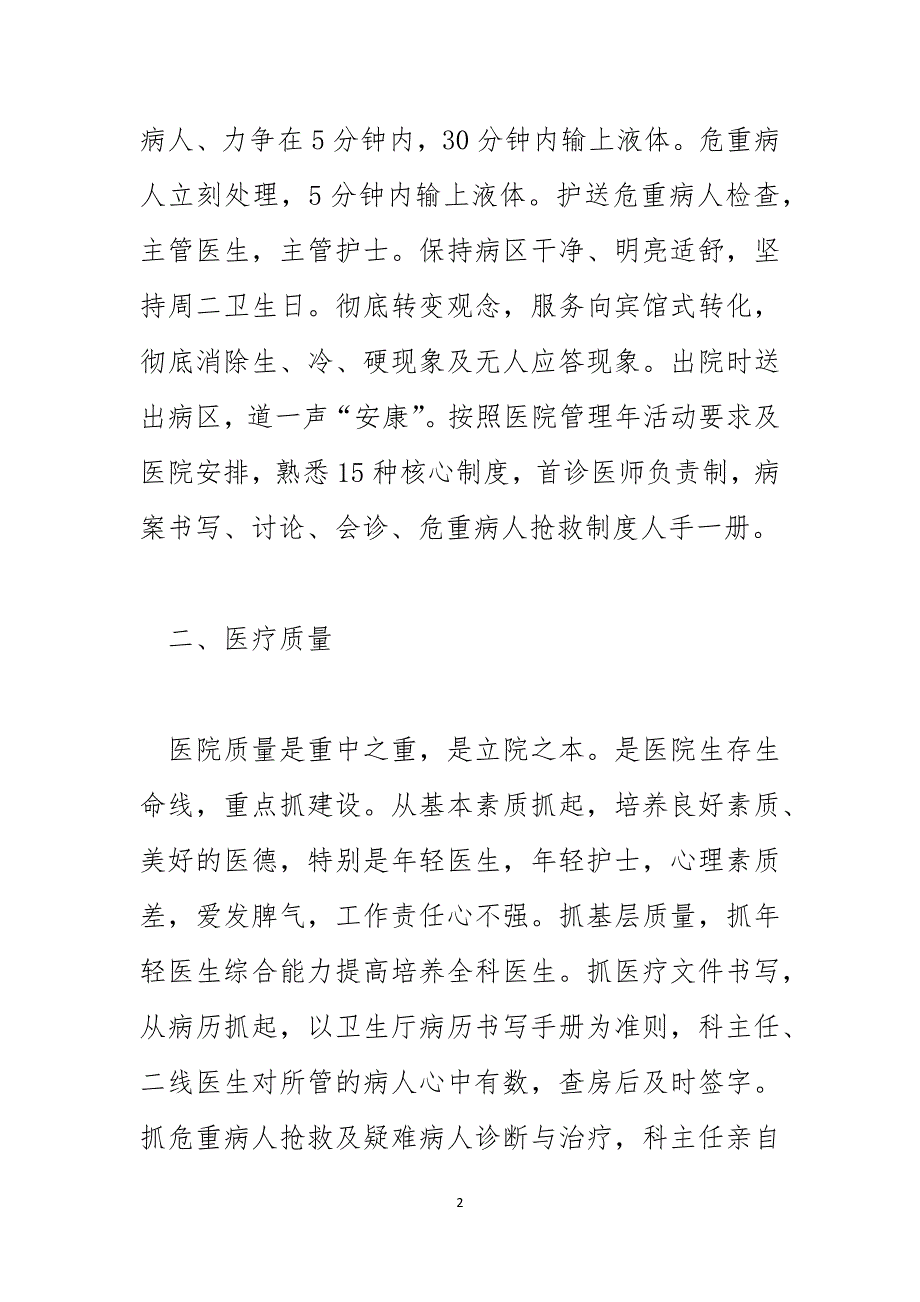 病人、力争在5分钟内，30分钟内输上液体。危重病
人立刻处理，5分钟内输上液体。护送危重病人检查，
主管医生，主管护士。保持病区干净、明亮适舒，坚
持周二卫生日。彻底转变观念，服务向宾馆式转化，
彻底消除生、冷、硬现象及无人应答现象。出院时送
出病区，道一声“安康”。按照医院管理年活动要求及
医院安排，熟悉15种核心制度，首诊医师负责制，病
案书写、讨论、会诊、危重病人抢救制度人手一册。
二、医疗质量
医院质量是重中之重，是立院之本。是医院生存生
命线，重点抓建设。从基本素质抓起，培养良好素质、
美好的医德，特别是年轻医生，年轻护士，心理素质
差，爱发脾气，工作责任心不强。抓基层质量，抓年
轻医生综合能力提高培养全科医生。抓医疗文件书写，
从病历抓起，以卫生厅病历书写手册为准则，科主任、
二线医生对所管的病人心中有数，查房后及时签字。
抓危重病人抢救及疑难病人诊断与治疗，科主任亲自
2